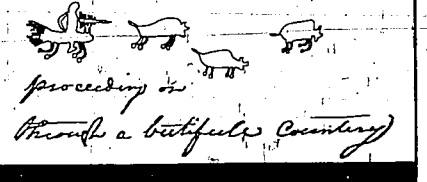 proceeding on
through a beutifule Countery